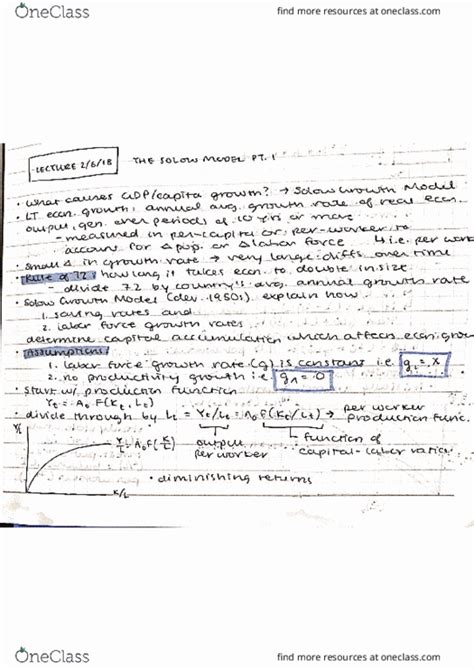 OneClass
find more resources at oneclass.com
LECTURE 2/6/18
THE SOLOW MODEL PT. 1
• What causes GDP/capita growth? → Solow Growth Model
• LT econ. growth, annual avg. growth rate of real econ.
output, gen. over periods of 10 yrs or more
- measured in per-capita or per-worker to
account for Δpop. or Δlabor force ↳ i.e. per work
• Small Δ in growth rate → very large diffs. over time
• Rule of 72: how long it takes econ. to double in size
- divide 72 by country's avg. annual growth rate
• Solow Growth Model (dev. 1950s) explain how
1. saving rates and
2. labor force growth rates
determine capital accumulation which affects econ. grow
• Assumptions:
1. labor force growth rate (g) is constant i.e.
2. no productivity growth i.e. gA = 0
• Start w/ production function
Yt = A0 F(Kt, Lt)
• divide through by Lt = Yt/Lt = A0 F(Kt/Lt) → per worker
production func.
Y/L
Y/L = A0 F(K/L)
output
per worker
function of
capital-labor ratio
K/L
• diminishing returns
OneClass
find more resources at oneclass.com